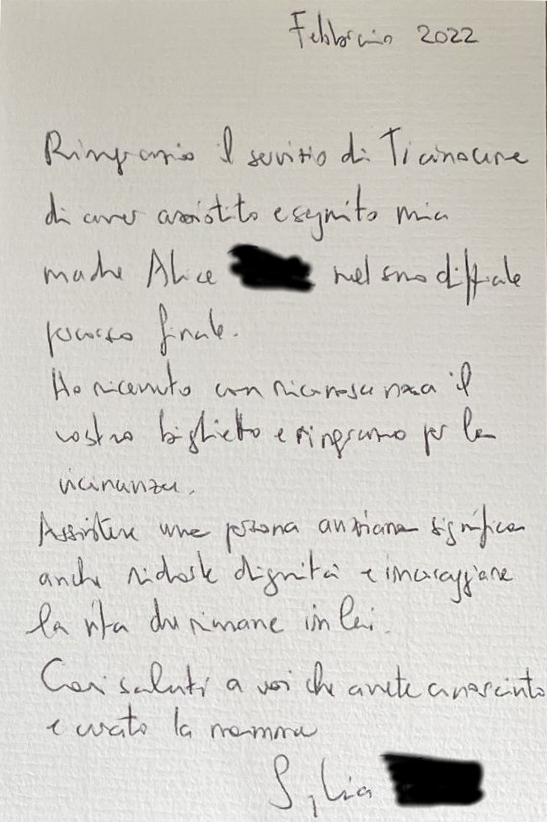 Febbraio 2022
Ringrazio il servizio di Ticinocure
di aver assistito e seguito mia
madre Alice nel suo difficile
percorso finale.
Ho ricevuto con riconoscenza il
vostro biglietto e ringrazio per la
vicinanza.
Assistere una persona anziana significa
anche ridarle dignità e incoraggiare
la vita che rimane in lei.
Cari saluti a voi che avete conosciuto
e curato la mamma
Silvia